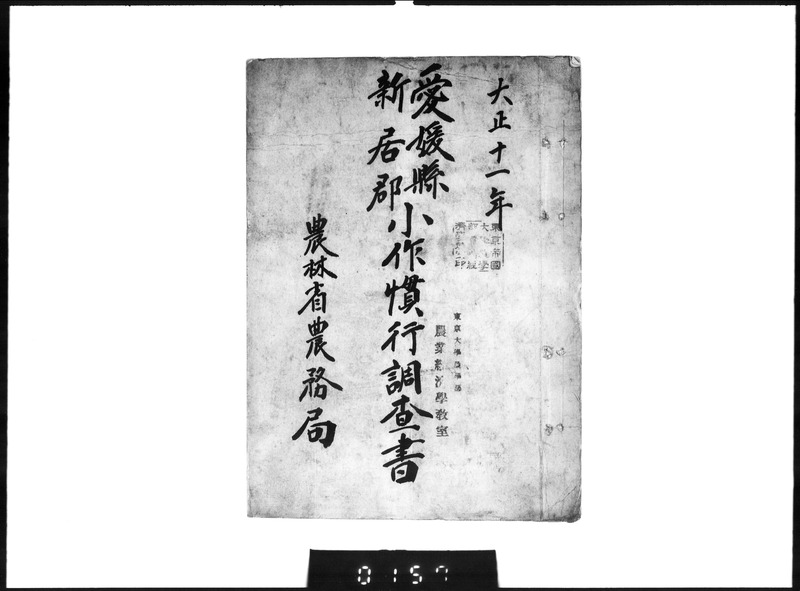 大正十一年
愛媛縣
新居郡
小作慣行調査書
農林省農務局
東京帝國
東京大學農學部
農業經濟學教室
0157